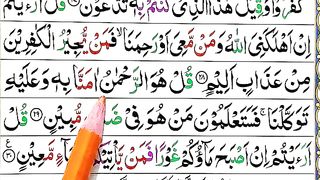 كَفَرُوْا وَقِيْلَ هٰذَا الَّذِيْ كُنْتُمْ بِهٖ تَدَّعُوْنَ ۝ قُلْ اَرَءَيْتُمْ
اِنْ اَهْلَكَنِيَ اللّٰهُ وَمَنْ مَّعِيَ اَوْ رَحِمَنَا ۙ فَمَنْ يُّجِيْرُ الْكٰفِرِيْنَ
مِنْ عَذَابٍ اَلِيْمٍ ۝٢٨ قُلْ هُوَ الرَّحْمٰنُ اٰمَنَّا بِهٖ وَعَلَيْهِ
تَوَكَّلْنَا ۚ فَسَتَعْلَمُوْنَ مَنْ هُوَ فِيْ ضَلٰلٍ مُّبِيْنٍ ۝٢٩ قُلْ
اَرَءَيْتُمْ اِنْ اَصْبَحَ مَآؤُكُمْ غَوْرًا فَمَنْ يَّاْتِيْكُمْ بِمَآءٍ مَّعِيْنٍ ۝٣٠